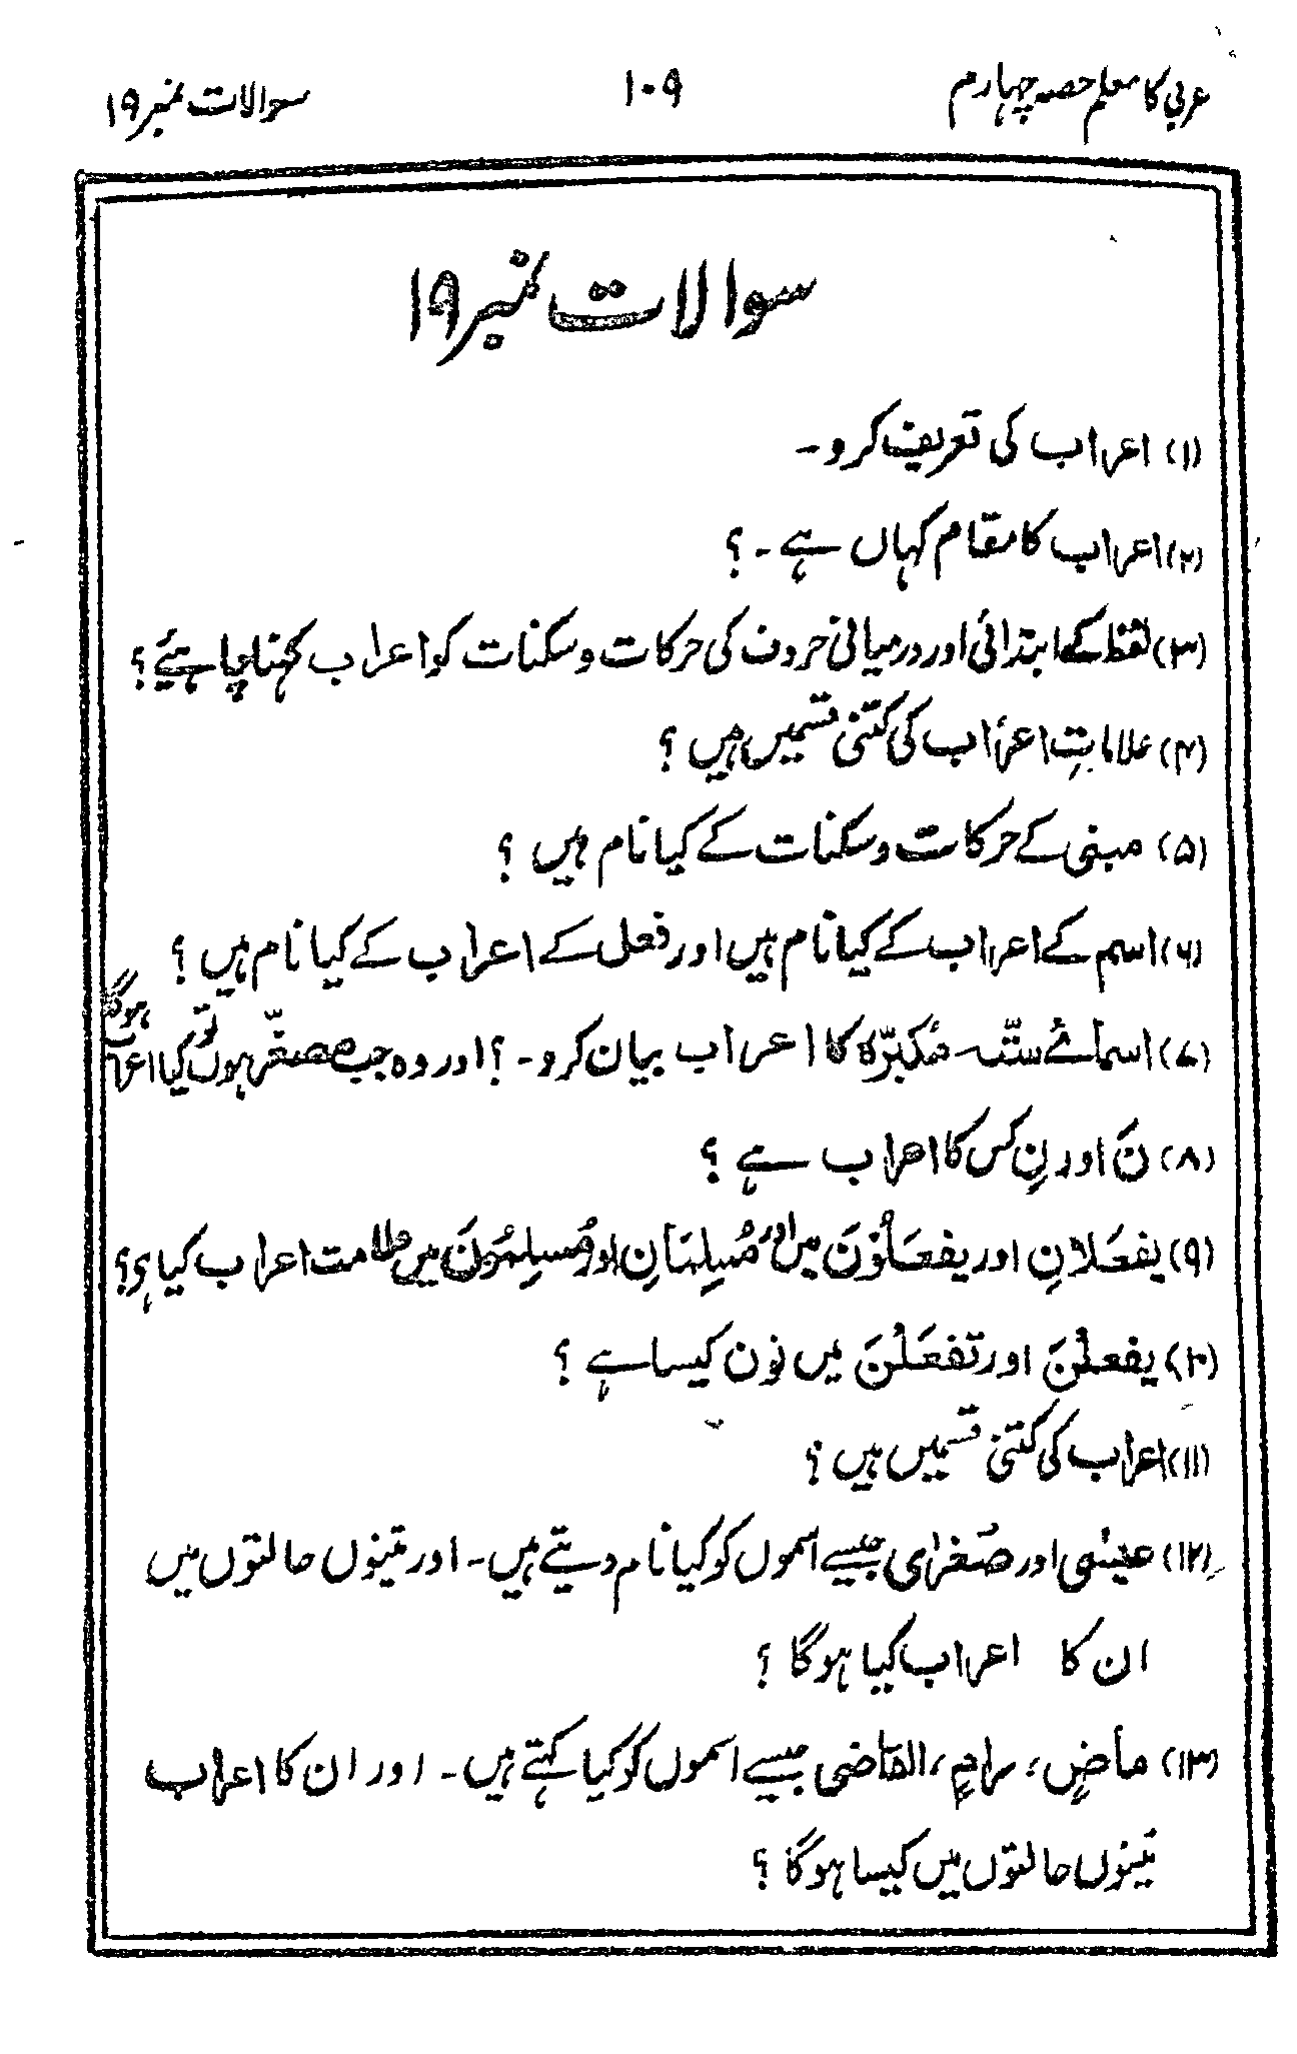 عربی کا معلم حصہ چہارم ۱۰۹ سوالات نمبر ۱۹
سوالات نمبر ۱۹
(۱) اعراب کی تعریف کرو۔
(۲) اعراب کا مقام کہاں ہے۔؟
(۳) لفظ کے ابتدائی اور درمیانی حروف کی حرکات و سکنات کو اعراب کہنا چاہئیے؟
(۴) علاماتِ اعراب کی کتنی قسمیں ہیں؟
(۵) مبنی کے حرکات و سکنات کے کیا نام ہیں؟
(۶) اسم کے اعراب کے کیا نام ہیں اور فعل کے اعراب کے کیا نام ہیں؟
(۷) اسمائے ستّہ مُکبّرہ کا اعراب بیان کرو۔؟ اور وہ جب مصغّر ہوں تو کیا اعراب ہوگا
(۸) نَ اور نِ کس کا اعراب ہے؟
(۹) یفعَلانِ اور یفعَلُوْنَ میں اور مُسلِمَانِ اور مُسلِمُوْنَ میں علامت اعراب کیا ہی؟
(۱۰) یفعلْنَ اور تفعَلْنَ میں نون کیسا ہے؟
(۱۱) اعراب کی کتنی قسمیں ہیں؟
(۱۲) عیسٰی اور صُغرٰی جیسے اسموں کو کیا نام دیتے ہیں۔ اور تینوں حالتوں میں
ان کا اعراب کیا ہوگا؟
(۱۳) ماضٍ، رامٍ، القاضی جیسے اسموں کو کیا کہتے ہیں۔ اور ان کا اعراب
تینوں حالتوں میں کیسا ہوگا؟